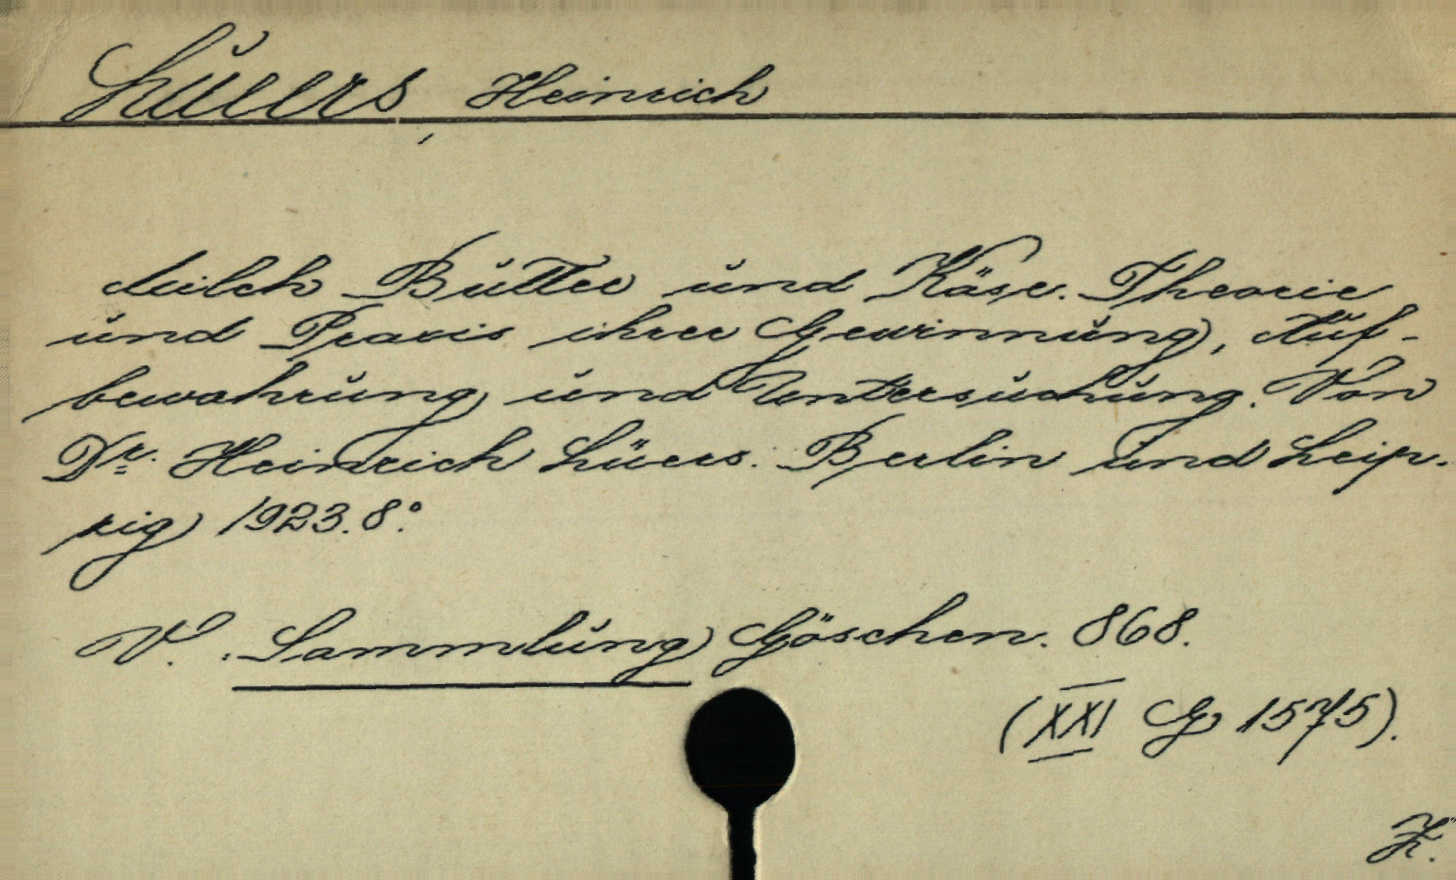 Lüers, Heinrich
Milch Butter und Käse. Theorie
und Praxis ihrer Gewinnung, Auf-
bewahrung und Untersuchung. Von
Dr. Heinrich Lüers. Berlin und Leip-
zig 1923. 8°.
V. Sammlung Göschen. 868.
(XXI G 1575).